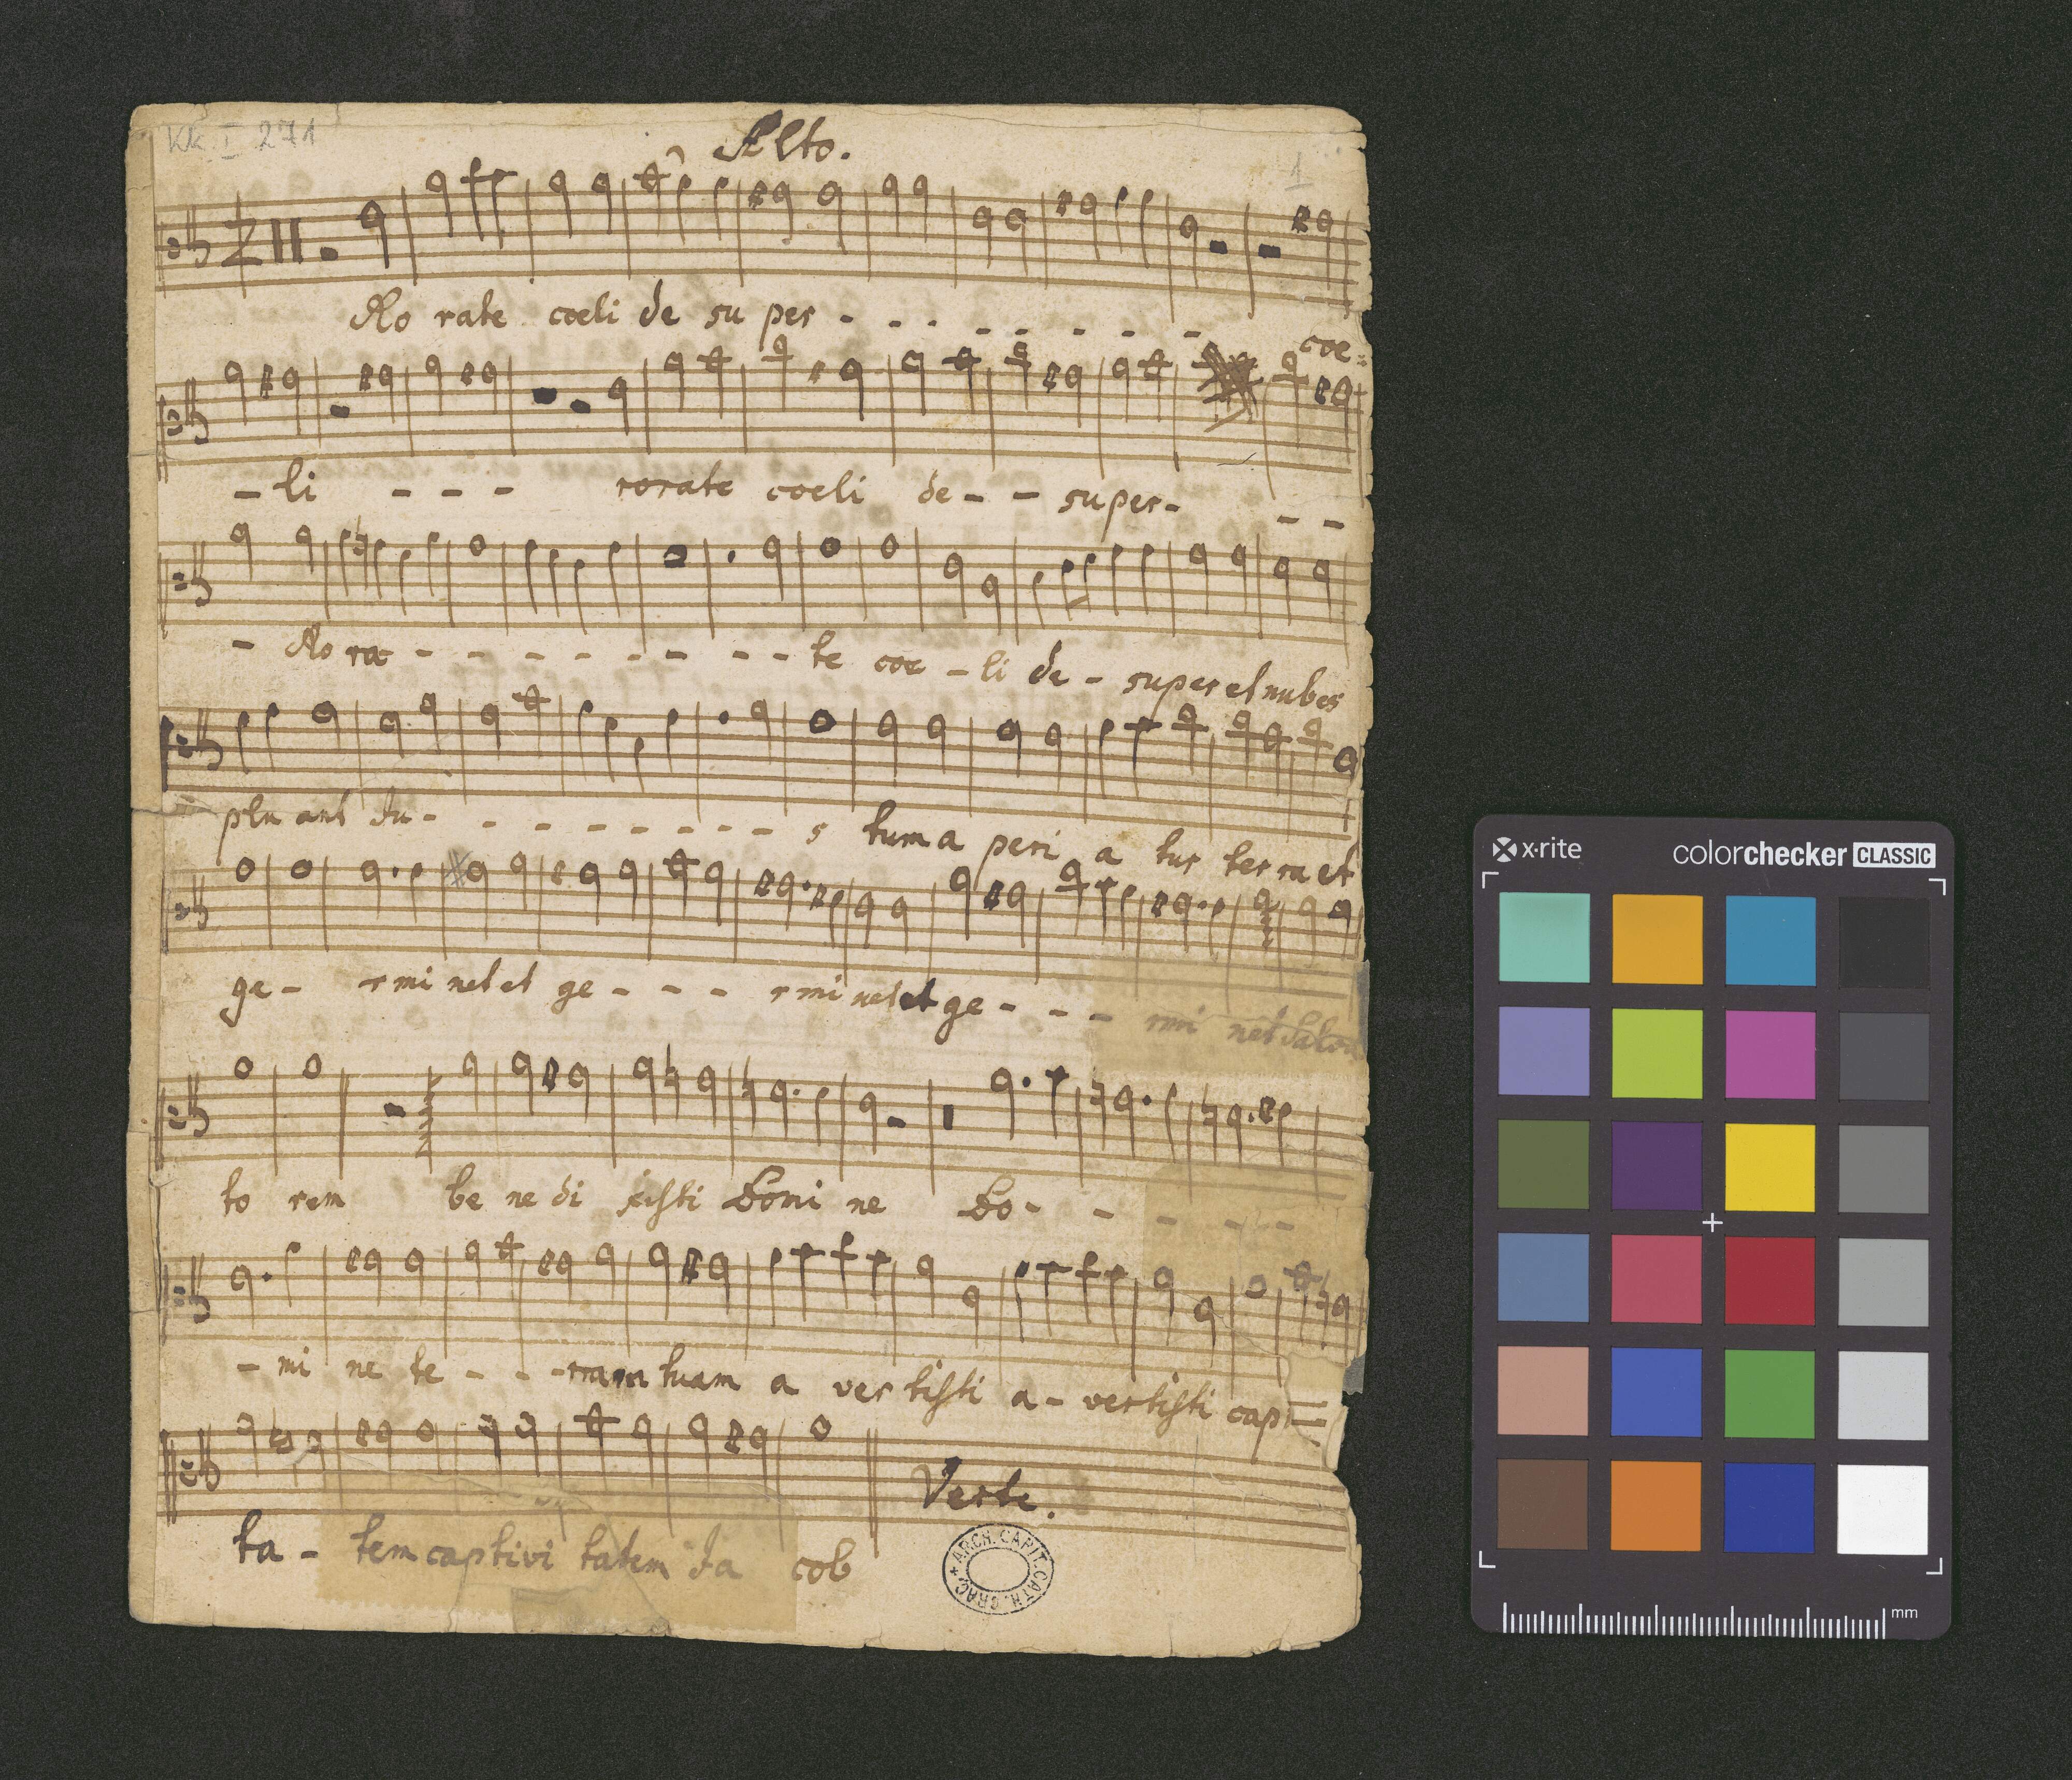 Kk. I 271
Alto.
1
Ro rate coeli de su per - - - - - - - - coe =
- li - - - rorate coeli de - - super - - -
- Ro ra - - - - - - - - te coe - li de - super et nubes
plu ant Ju - - - - - - - - s tum a peri a tur ter ra et
ge - rmi net et ge - - - rmi net et ge - - - rmi net Salva
to rem be ne di xisti Domi ne Do - - - - -
- mi ne te - - - rram tuam a ver tisti a - vertisti capti
Verte.
ta - tem captivi tatem Ja cob
ARCH. CAPIT. CATH. CRAC. +
x·rite
colorchecker CLASSIC
mm